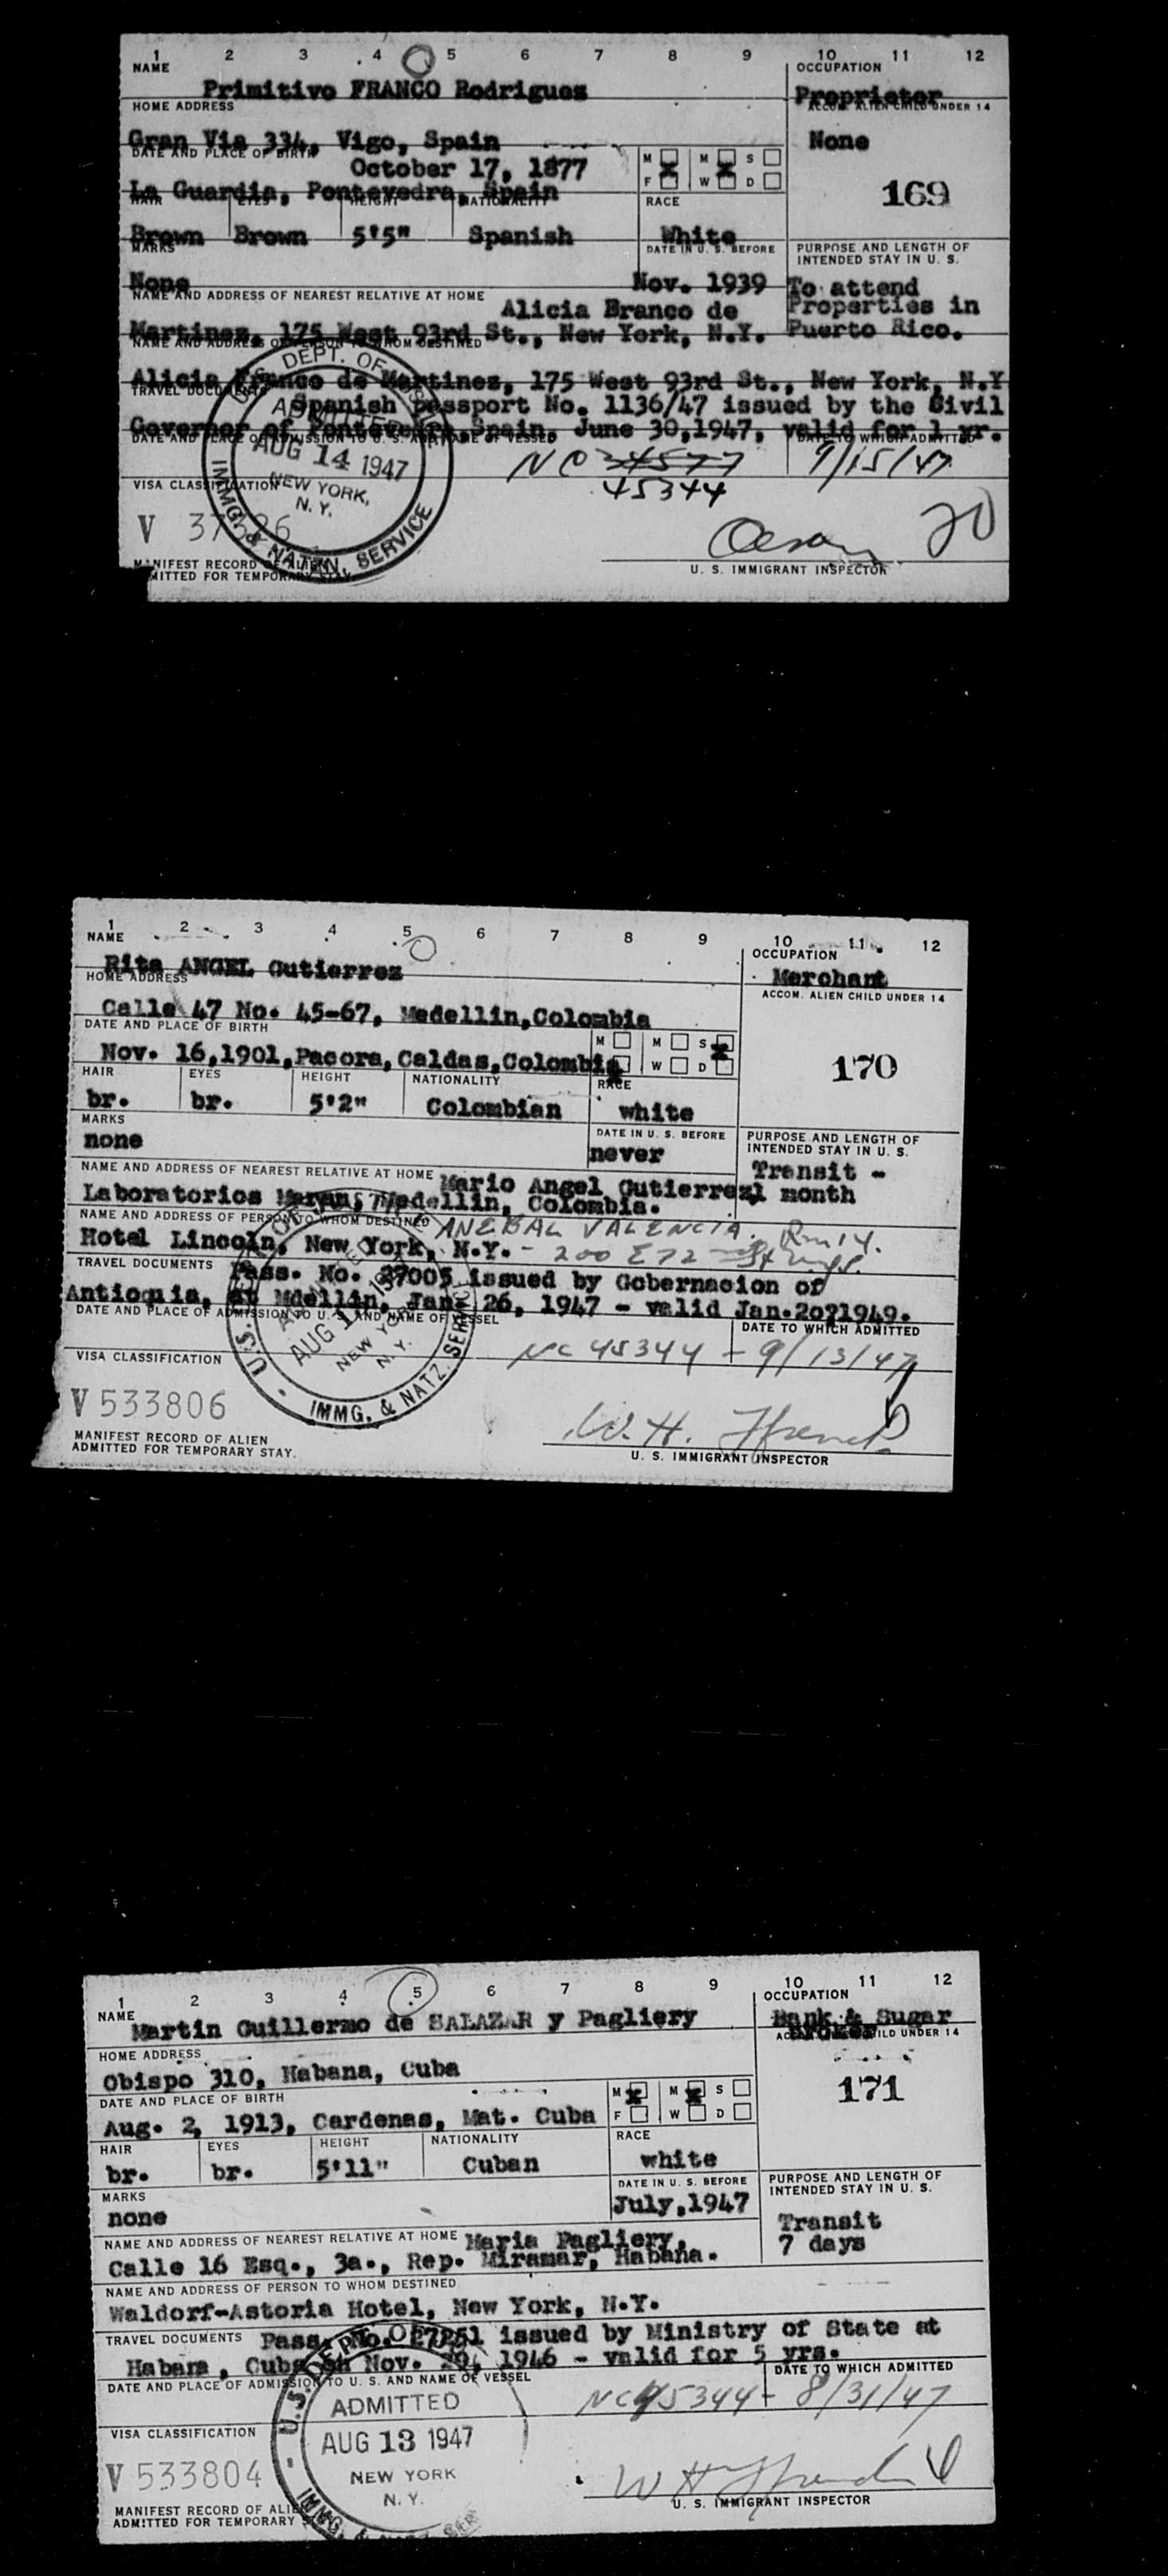 1 2 3 4 5 6 7 8 9 10 11 12
NAME OCCUPATION
Primitivo FRANCO Rodriguez Proprietor
HOME ADDRESS ACCOM. ALIEN CHILD UNDER 14
Gran Via 334, Vigo, Spain None
DATE AND PLACE OF BIRTH
October 17, 1877 M M S
La Guardia, Pontevedra, Spain F W D 169
HAIR EYES HEIGHT NATIONALITY RACE
Brown Brown 5'5" Spanish White
MARKS DATE IN U. S. BEFORE PURPOSE AND LENGTH OF INTENDED STAY IN U. S.
None Nov. 1939 To attend
NAME AND ADDRESS OF NEAREST RELATIVE AT HOME Alicia Branco de Properties in
Martinez, 175 West 93rd St., New York, N.Y. Puerto Rico.
NAME AND ADDRESS OF PERSON TO WHOM DESTINED
Alicia Franco de Martinez, 175 West 93rd St., New York, N.Y
TRAVEL DOCUMENTS Spanish passport No. 1136/47 issued by the Civil
Governor of Pontevedra, Spain, June 30,1947, valid for 1 yr.
DATE AND PLACE OF ADMISSION TO U. S. AND NAME OF VESSEL DATE TO WHICH ADMITTED
NC 34577 9/15/47
45344
U.S. DEPT. OF JUSTICE
ADMITTED
AUG 14 1947
NEW YORK,
N. Y.
IMMG. & NATZN. SERVICE
VISA CLASSIFICATION
V 20
MANIFEST RECORD OF ALIEN
ADMITTED FOR TEMPORARY STAY.
U. S. IMMIGRANT INSPECTOR
1 2 3 4 5 6 7 8 9 10 11 12
NAME OCCUPATION
Rita ANGEL Gutierrez Merchant
HOME ADDRESS ACCOM. ALIEN CHILD UNDER 14
Calle 47 No. 45-67, Medellin,Colombia
DATE AND PLACE OF BIRTH M M S
Nov. 16,1901,Pacora,Caldas,Colombia W D 170
HAIR EYES HEIGHT NATIONALITY RACE
br. br. 5'2" Colombian white
MARKS DATE IN U. S. BEFORE PURPOSE AND LENGTH OF INTENDED STAY IN U. S.
none never Transit -
NAME AND ADDRESS OF NEAREST RELATIVE AT HOME Mario Angel Gutierrez 1 month
Laboratorios Medellin, Colombia.
NAME AND ADDRESS OF PERSON TO WHOM DESTINED ANEBAL VALENCIA. Rm 14.
Hotel Lincoln, New York, N.Y. - 200 E 72
TRAVEL DOCUMENTS Pass. No. 27005 issued by Gobernacion of
Antioquia, at Mdellin, Jan. 26, 1947 - valid 1949.
DATE AND PLACE OF ADMISSION TO U. S. AND NAME OF VESSEL DATE TO WHICH ADMITTED
NC 45344 - 9/13/47
AUG
NEW YORK
N. Y.
U.S. IMMG. & NATZ. SERVICE
VISA CLASSIFICATION
V 533806
W. H. Ffrench
MANIFEST RECORD OF ALIEN
ADMITTED FOR TEMPORARY STAY.
U. S. IMMIGRANT INSPECTOR
1 2 3 4 5 6 7 8 9 10 11 12
NAME OCCUPATION
Martin Guillermo de SALAZAR y Pagliery Bank & Sugar
Broker
HOME ADDRESS ACCOM. ALIEN CHILD UNDER 14
Obispo 310, Habana, Cuba
DATE AND PLACE OF BIRTH M M S 171
Aug. 2, 1913, Cardenas, Mat. Cuba F W D
HAIR EYES HEIGHT NATIONALITY RACE
br. br. 5'11" Cuban white
MARKS DATE IN U. S. BEFORE PURPOSE AND LENGTH OF INTENDED STAY IN U. S.
none July,1947 Transit
NAME AND ADDRESS OF NEAREST RELATIVE AT HOME Maria Pagliery, 7 days
Calle 16 Esq., 3a., Rep. Miramar, Habana.
NAME AND ADDRESS OF PERSON TO WHOM DESTINED
Waldorf-Astoria Hotel, New York, N.Y.
TRAVEL DOCUMENTS Pass. No. 27251 issued by Ministry of State at
Habana, Cuba on Nov. 29, 1946 - valid for 5 yrs.
DATE AND PLACE OF ADMISSION TO U. S. AND NAME OF VESSEL DATE TO WHICH ADMITTED
NC 45344 - 8/31/47
U.S. DEPT. OF
ADMITTED
AUG 13 1947
NEW YORK
N. Y.
IMMG. & NATZ. SER
VISA CLASSIFICATION
V 533804
W H Ffrench
MANIFEST RECORD OF ALIEN
ADMITTED FOR TEMPORARY
U. S. IMMIGRANT INSPECTOR